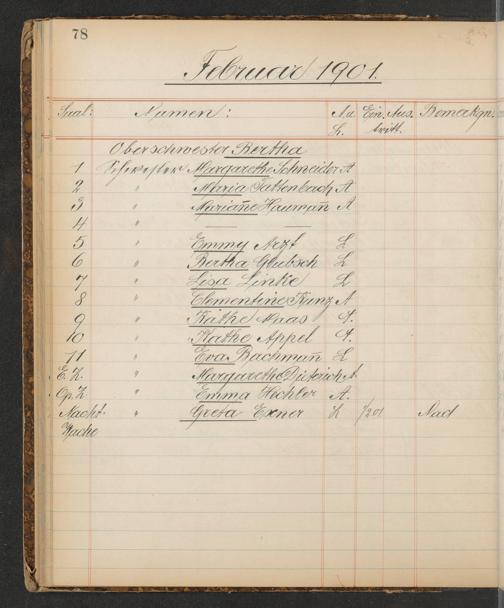 78
Februar 1901.
Saal: Namen: A.u. Ein. Aus. Bemerkgn:
L. tritt.
Oberschwester Bertha
1 Schwester Margarethe Schneider A
2 " Maria Tattenbach A
3 " Mariañe Haumañ A
4 "
5 " Emmy Arzt L
6 " Bertha Glubsch L
7 " Lisa Linke L
8 " Clementine Kunz A
9 " Käthe Maas A.
10 " Käthe Appel A.
11 " Eva Bachmañ L
E.Z. " Margarethe Dieterich A.
Op. Z " Emma Hechler A.
Nacht- " Greta Exner L 1/2 01
Wache